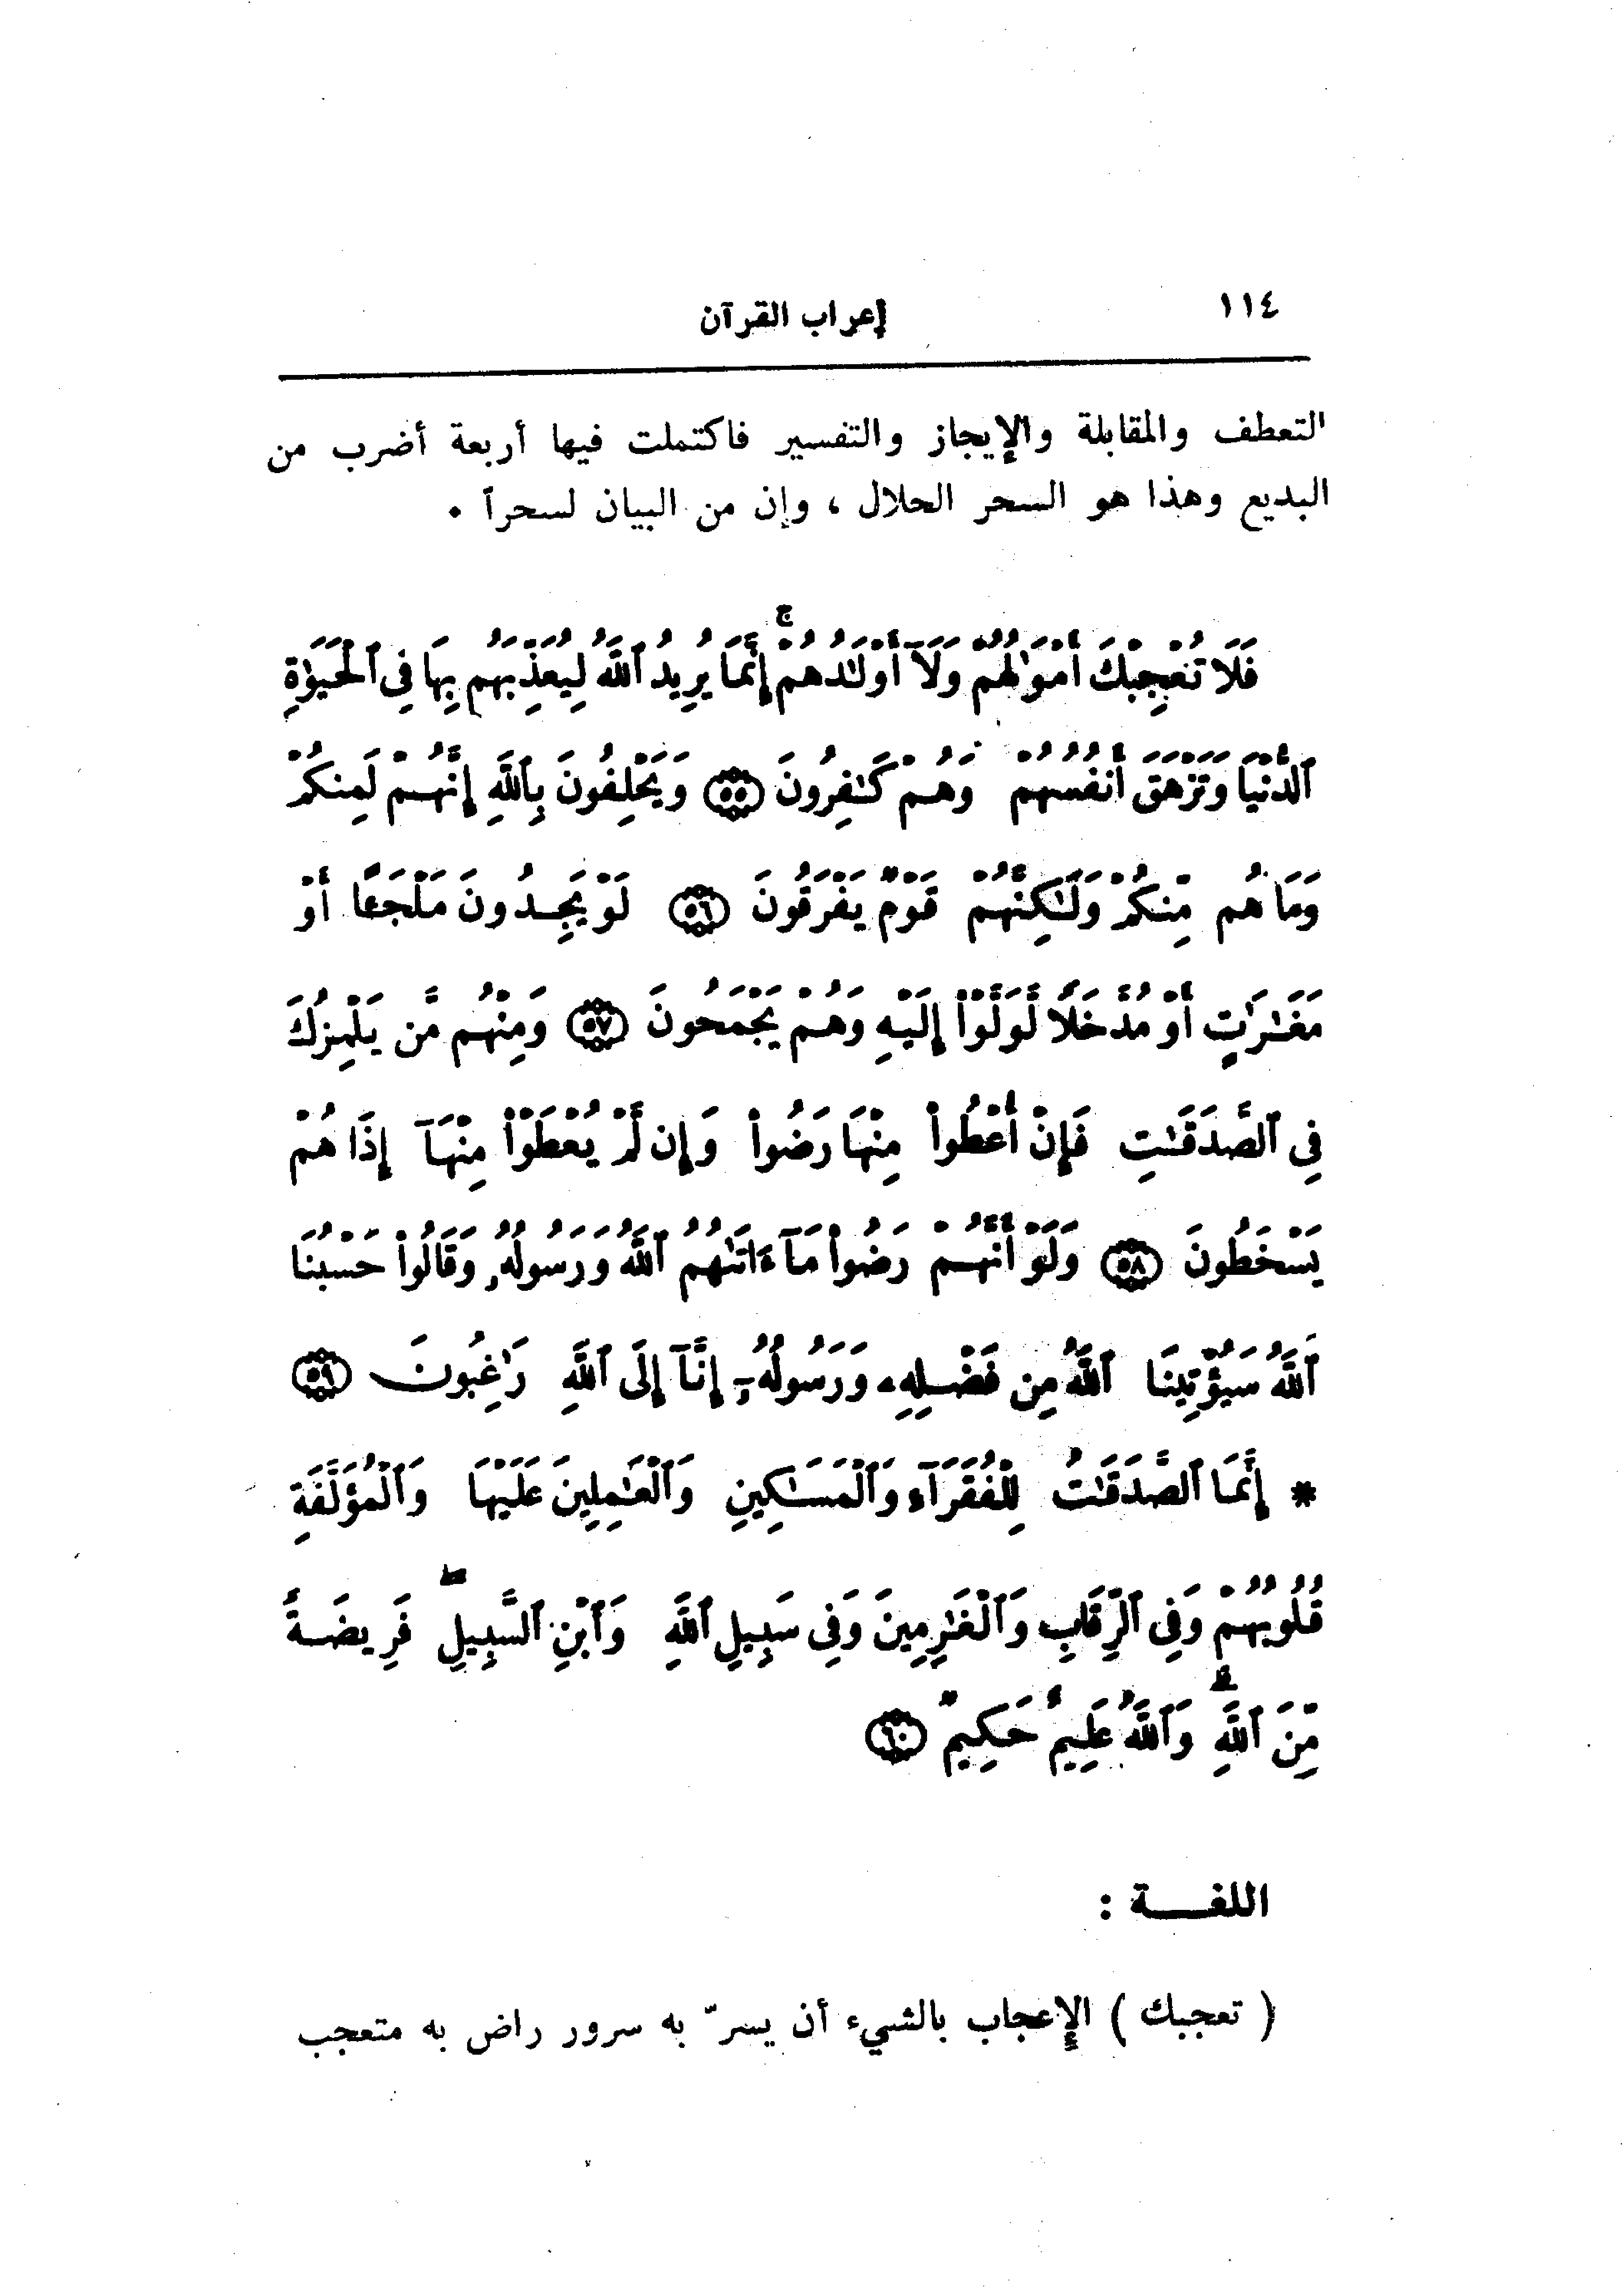 ١١٤
إعراب القرآن
التعطف والمقابلة والإيجاز والتفسير فاكتملت فيها أربعة أضرب من
البديع وهذا هو السحر الحلال ، وإن من البيان لسحراً .
فَلَا تُعْجِبْكَ أَمْوَٰلُهُمْ وَلَآ أَوْلَٰدُهُمْ ۚ إِنَّمَا يُرِيدُ ٱللَّهُ لِيُعَذِّبَهُم بِهَا فِى ٱلْحَيَوٰةِ
ٱلدُّنْيَا وَتَزْهَقَ أَنفُسُهُمْ وَهُمْ كَٰفِرُونَ ﴿٥٥﴾ وَيَحْلِفُونَ بِٱللَّهِ إِنَّهُمْ لَمِنكُمْ
وَمَا هُم مِّنكُمْ وَلَٰكِنَّهُمْ قَوْمٌ يَفْرَقُونَ ﴿٥٦﴾ لَوْ يَجِدُونَ مَلْجَـًٔا أَوْ
مَغَٰرَٰتٍ أَوْ مُدَّخَلًا لَّوَلَّوْا۟ إِلَيْهِ وَهُمْ يَجْمَحُونَ ﴿٥٧﴾ وَمِنْهُم مَّن يَلْمِزُكَ
فِى ٱلصَّدَقَٰتِ فَإِنْ أُعْطُوا۟ مِنْهَا رَضُوا۟ وَإِن لَّمْ يُعْطَوْا۟ مِنْهَآ إِذَا هُمْ
يَسْخَطُونَ ﴿٥٨﴾ وَلَوْ أَنَّهُمْ رَضُوا۟ مَآ ءَاتَىٰهُمُ ٱللَّهُ وَرَسُولُهُۥ وَقَالُوا۟ حَسْبُنَا
ٱللَّهُ سَيُؤْتِينَا ٱللَّهُ مِن فَضْلِهِۦ وَرَسُولُهُۥٓ إِنَّآ إِلَى ٱللَّهِ رَٰغِبُونَ ﴿٥٩﴾
* إِنَّمَا ٱلصَّدَقَٰتُ لِلْفُقَرَآءِ وَٱلْمَسَٰكِينِ وَٱلْعَٰمِلِينَ عَلَيْهَا وَٱلْمُؤَلَّفَةِ
قُلُوبُهُمْ وَفِى ٱلرِّقَابِ وَٱلْغَٰرِمِينَ وَفِى سَبِيلِ ٱللَّهِ وَٱبْنِ ٱلسَّبِيلِ ۖ فَرِيضَةً
مِّنَ ٱللَّهِ ۗ وَٱللَّهُ عَلِيمٌ حَكِيمٌ ﴿٦٠﴾
اللغـــة :
( تعجبك ) الإعجاب بالشيء أن يسرّ به سرور راض به متعجب